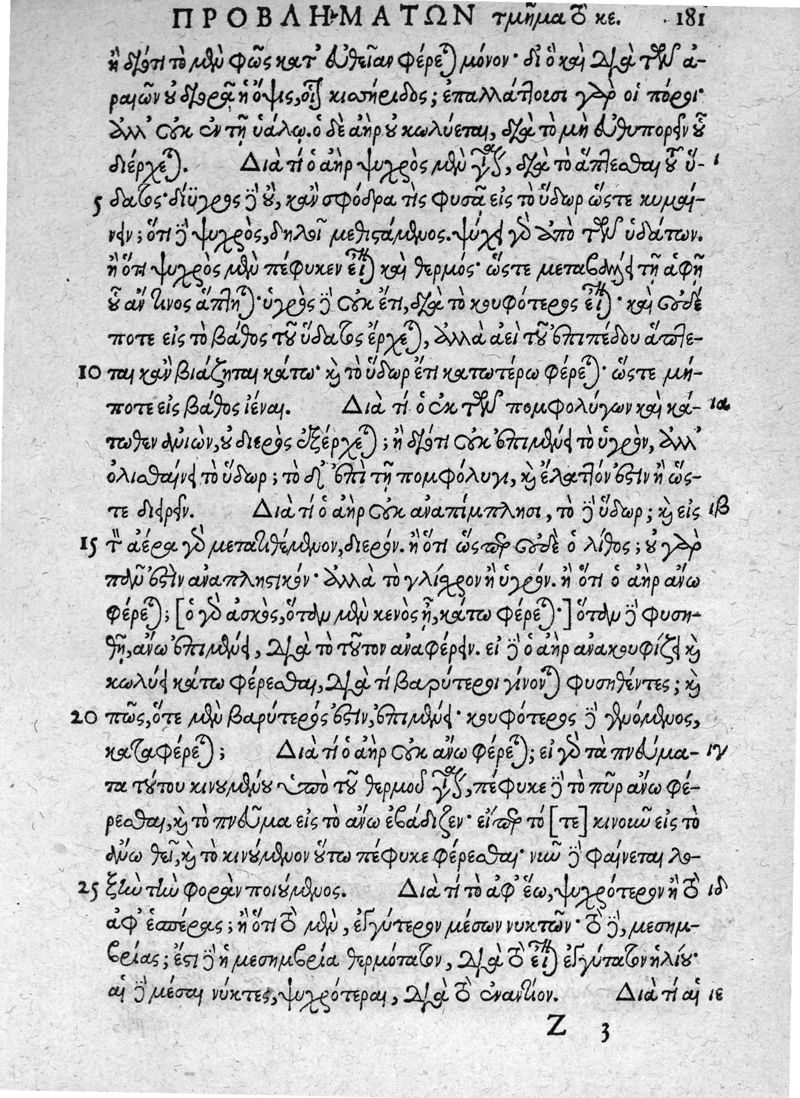 ΠΡΟΒΛΗΜΑΤΩΝ τμῆμα τὸ κε. 181
ἢ διότι τὸ μὲν φῶς κατ' εὐθεῖαν φέρεται μόνον· δι' ὃ καὶ διὰ τῶν ἀ-
ραιῶν οὐ διορᾷ ἡ ὄψις, οἷον κισήριδος; ἐπαλλάττουσι γὰρ οἱ πόροι·
ἀλλ' οὐκ ἐν τῇ ὑάλῳ. ὁ δὲ ἀὴρ οὐ κωλύεται, διὰ τὸ μὴ εὐθυπορεῖν οὗ
διέρχεται. Διὰ τί ὁ ἀὴρ ψυχρὸς μὲν γίνεται, διὰ τὸ ἅπτεσθαι τοῦ ὕ- ι
5 δατος· δίϋγρος δὲ οὔ, κἂν σφόδρα τὶς φυσᾷ εἰς τὸ ὕδωρ ὥστε κυμαί-
νειν; ὅτι δὲ ψυχρὸς, δηλοῖ μεθιστάμενος. ψύχει γὰρ ἀπὸ τῶν ὑδάτων.
ἢ ὅτι ψυχρὸς μὲν πέφυκεν εἶναι καὶ θερμός· ὥστε μεταβάλλει τῇ ἁφῇ
οὗ ἄν τινος ἅπτηται· ὑγρὸς δὲ οὐκ ἔτι, διὰ τὸ κουφότερος εἶναι· καὶ οὐδέ
ποτε εἰς τὸ βάθος τοῦ ὕδατος ἔρχεται, ἀλλὰ ἀεὶ τοῦ ἐπιπέδου ἅπτε-
10 ται κἂν βιάζηται κάτω· καὶ τὸ ὕδωρ ἔτι κατωτέρω φέρεται· ὥστε μή-
ποτε εἰς βάθος ἰέναι. Διὰ τί ὁ ἐκ τῶν πομφολύγων καὶ κά- ια
τωθεν ἀνιὼν, οὐ διερὸς ἐξέρχεται; ἢ διότι οὐκ ἐπιμένει τὸ ὑγρὸν, ἀλλ'
ὀλισθαίνει τὸ ὕδωρ; τὸ δ' ἐπὶ τῇ πομφόλυγι, καὶ ἔλαττόν ἐστιν ἢ ὥς-
τε διερεῖν. Διὰ τί ὁ ἀὴρ οὐκ ἀναπίμπλησι, τὸ δὲ ὕδωρ; καὶ εἰς ιβ
15 τὸν ἀέρα γὰρ μετατιθέμενον, διερόν. ἢ ὅτι ὥσπερ οὐδὲ ὁ λίθος; οὐ γὰρ
πᾶν ἐστὶν ἀναπληστικόν· ἀλλὰ τὸ γλίσχρον ἢ ὑγρόν. ἢ ὅτι ὁ ἀὴρ ἄνω
φέρεται; [ὁ γὰρ ἀσκὸς, ὅταν μὲν κενὸς ᾖ, κάτω φέρεται·] ὅταν δὲ φυση-
θῇ, ἄνω ἐπιμένει, διὰ τὸ τοῦτον ἀναφέρειν. εἰ δὲ ὁ ἀὴρ ἀνακουφίζει καὶ
κωλύει κάτω φέρεσθαι, διὰ τί βαρύτεροι γίνονται φυσηθέντες; καὶ
20 πῶς, ὅτε μὲν βαρύτερός ἐστιν, ἐπιμένει· κουφότερος δὲ γενόμενος,
καταφέρεται; Διὰ τί ὁ ἀὴρ οὐκ ἄνω φέρεται; εἰ γὰρ τὰ πνεύμα- ιγ
τα τούτου κινουμένου ὑπὸ τοῦ θερμοῦ γίνεται, πέφυκε δὲ τὸ πῦρ ἄνω φέ-
ρεσθαι, καὶ τὸ πνεῦμα εἰς τὸ ἄνω ἐβάδιζεν· εἴπερ τό [τε] κινοῦν εἰς τὸ
ἄνω θεῖ, καὶ τὸ κινούμενον οὕτω πέφυκε φέρεσθαι· νῦν δὲ φαίνεται λο-
25 ξὴν τὴν φορὰν ποιούμενος. Διὰ τί τὸ ἀφ' ἕω, ψυχρότερον ἢ τὸ ιδ
ἀφ' ἑσπέρας; ἢ ὅτι τὸ μὲν, ἐγγύτερον μέσων νυκτῶν· τὸ δὲ, μεσημ-
βρίας; ἔστι δὲ ἡ μεσημβρία θερμότατον, διὰ τὸ εἶναι ἐγγύτατον ἡλίου·
αἱ δὲ μέσαι νύκτες, ψυχρότεραι, διὰ τὸ ἐναντίον. Διὰ τί αἱ ιε
Z 3